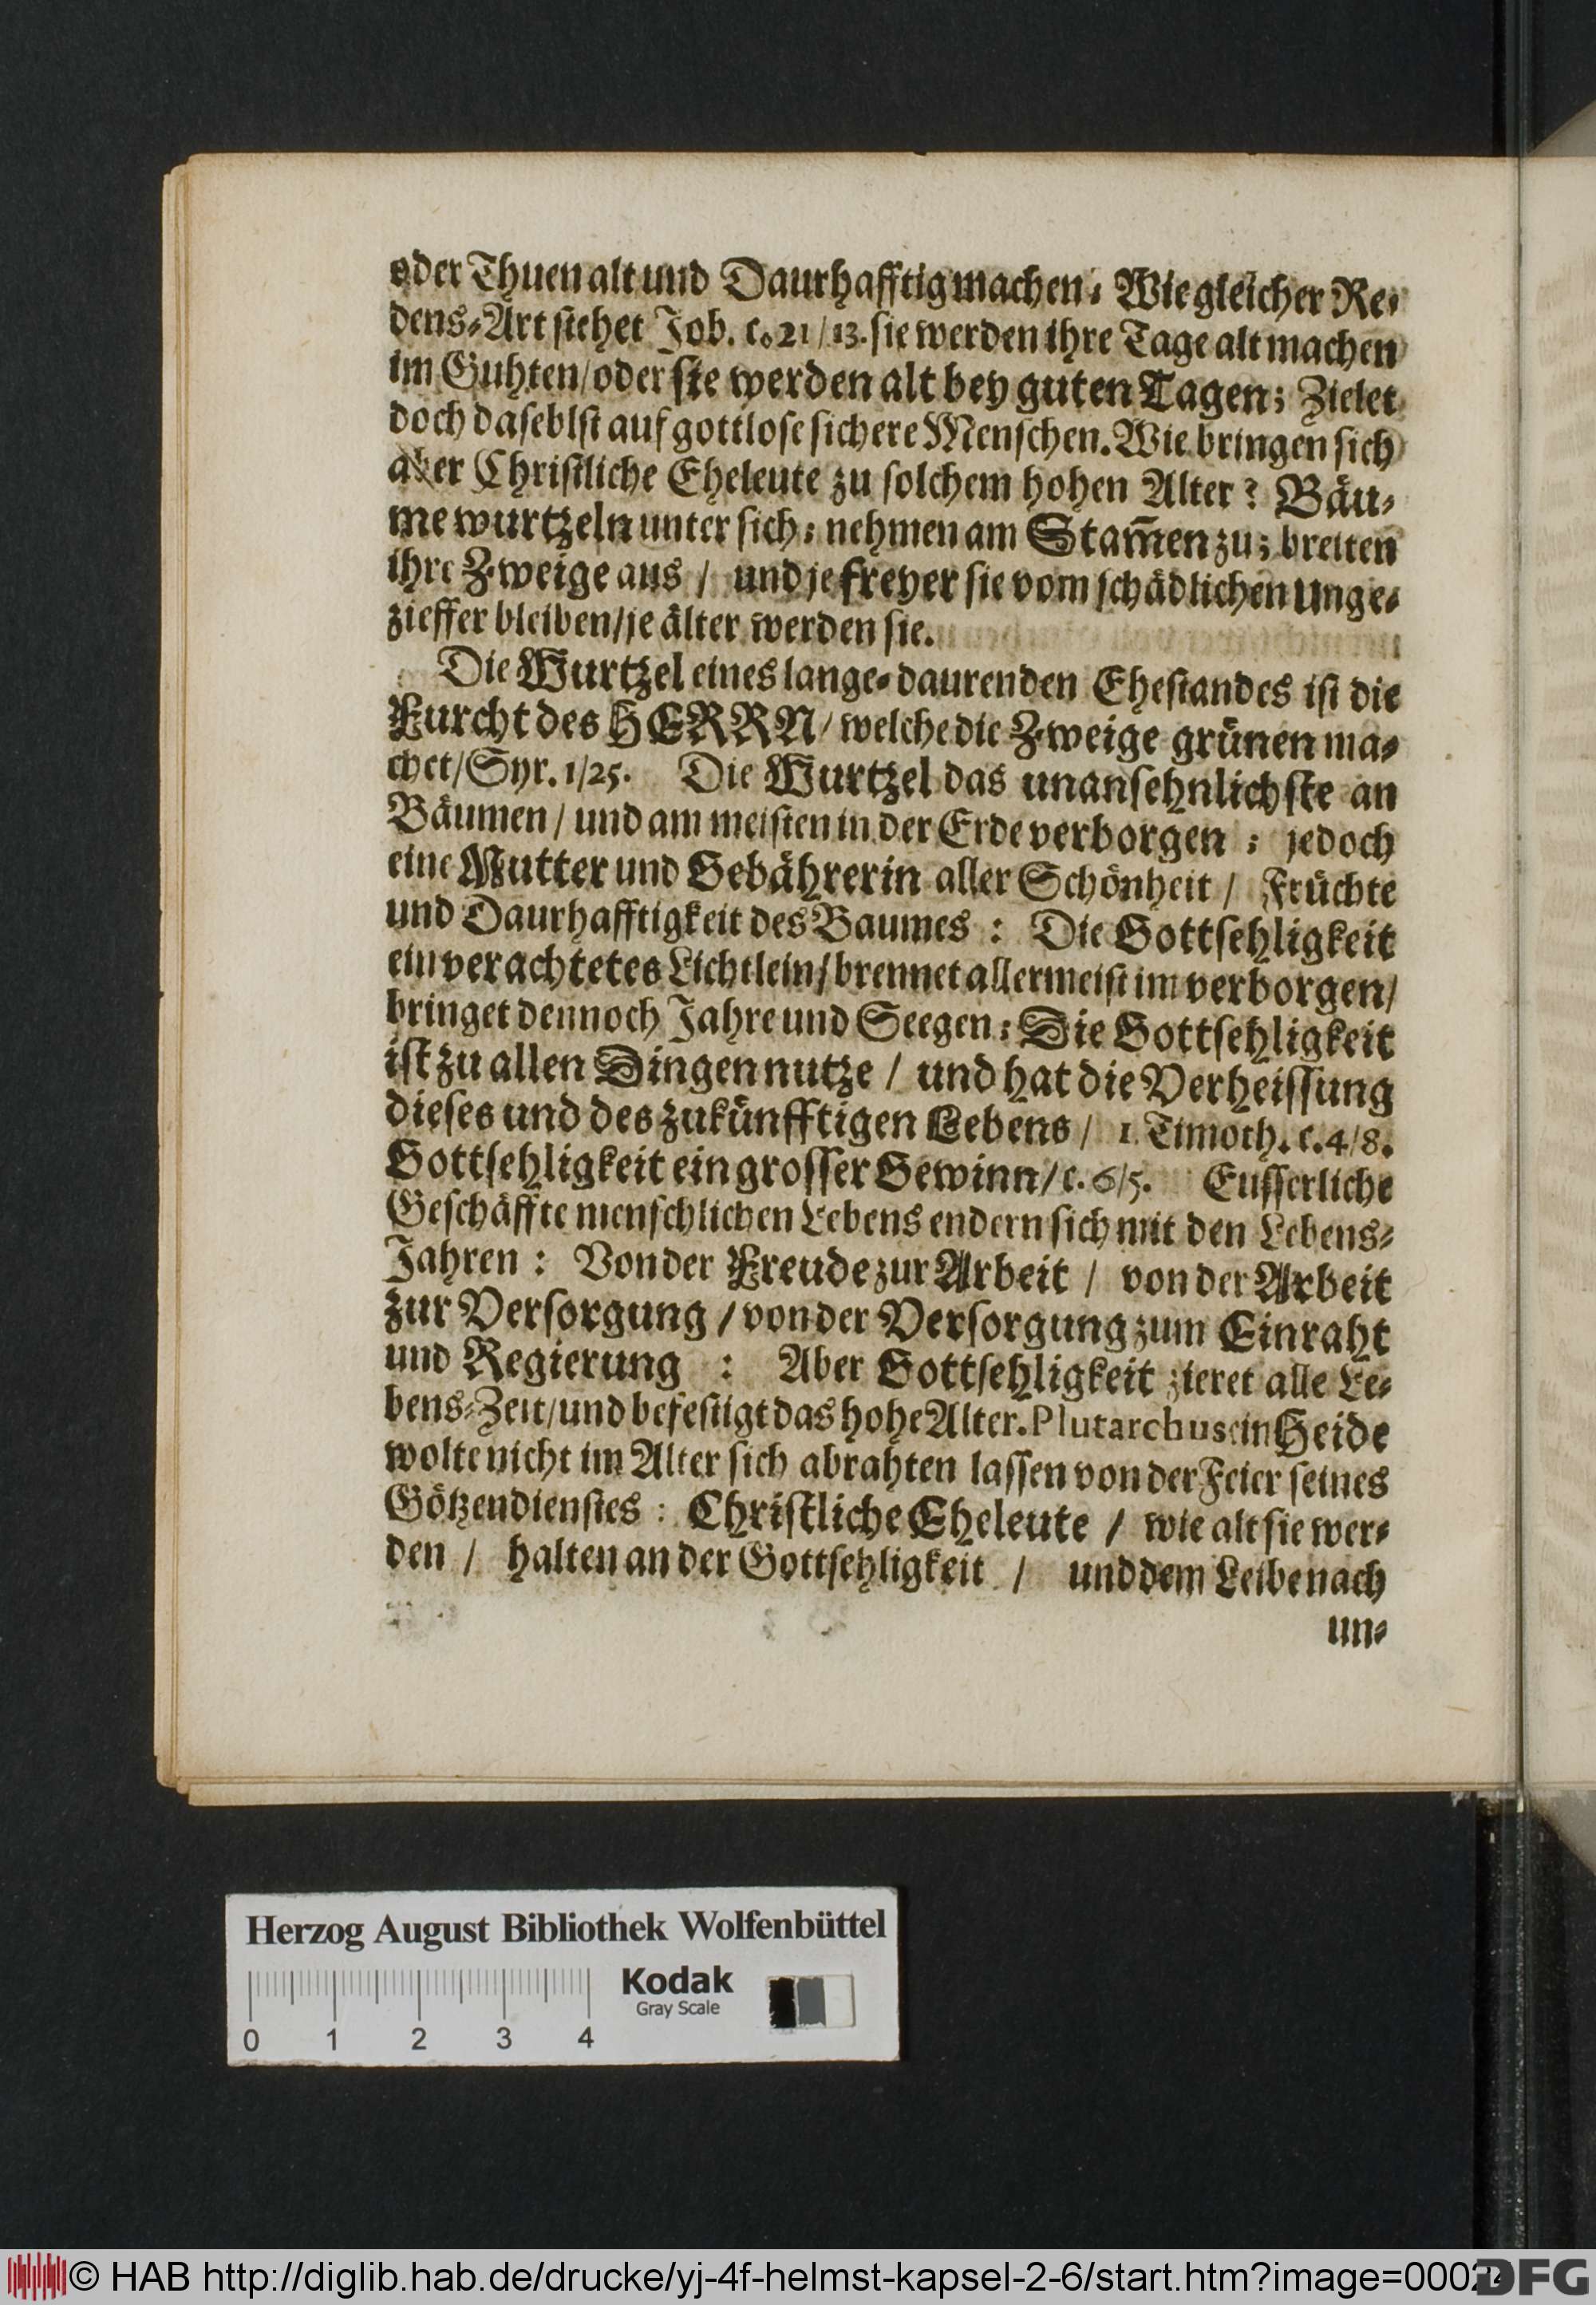 oder Thuen alt und Daurhafftig machen; Wie gleicher Re-
dens-Art stehet Job. c. 21/13. sie werden ihre Tage alt machen
im Guhten/oder sie werden alt bey guten Tagen; Zielet
doch daseblst auf gottlose sichere Menschen. Wie bringen sich
aber Christliche Eheleute zu solchem hohen Alter? Bäu-
me wurtzeln unter sich; nehmen am Stam̃en zu; breiten
ihre Zweige aus / und je freyer sie vom schädlichen Unge-
zieffer bleiben/je älter werden sie.
Die Wurtzel eines lange-daurenden Ehestandes ist die
Furcht des HERRN/ welche die Zweige grünen ma-
chet/Syr. 1/25. Die Wurtzel das unansehnlichste an
Bäumen/ und am meisten in der Erde verborgen; jedoch
eine Mutter und Gebährerin aller Schönheit / Früchte
und Daurhafftigkeit des Baumes: Die Gottsehligkeit
ein verachtetes Lichtlein/brennet allermeist im verborgen/
bringet dennoch Jahre und Seegen: Die Gottsehligkeit
ist zu allen Dingen nutze / und hat die Verheissung
dieses und des zukünfftigen Lebens / 1. Timoth. c. 4/8.
Gottsehligkeit ein grosser Gewinn/ c. 6/5. Eusserliche
Geschäffte menschlichen Lebens endern sich mit den Lebens-
Jahren: Von der Freude zur Arbeit / von der Arbeit
zur Versorgung / von der Versorgung zum Einraht
und Regierung : Aber Gottsehligkeit zieret alle Le-
bens-Zeit/und befestigt das hohe Alter. Plutarchus ein Heide
wolte nicht im Alter sich abrahten lassen von der Feier seines
Götzendienstes: Christliche Eheleute / wie alt sie wer-
den / halten an der Gottsehligkeit / und dem Leibe nach
un-
Herzog August Bibliothek Wolfenbüttel
Kodak
Gray Scale
0 1 2 3 4
© HAB http://diglib.hab.de/drucke/yj-4f-helmst-kapsel-2-6/start.htm?image=0002
DFG